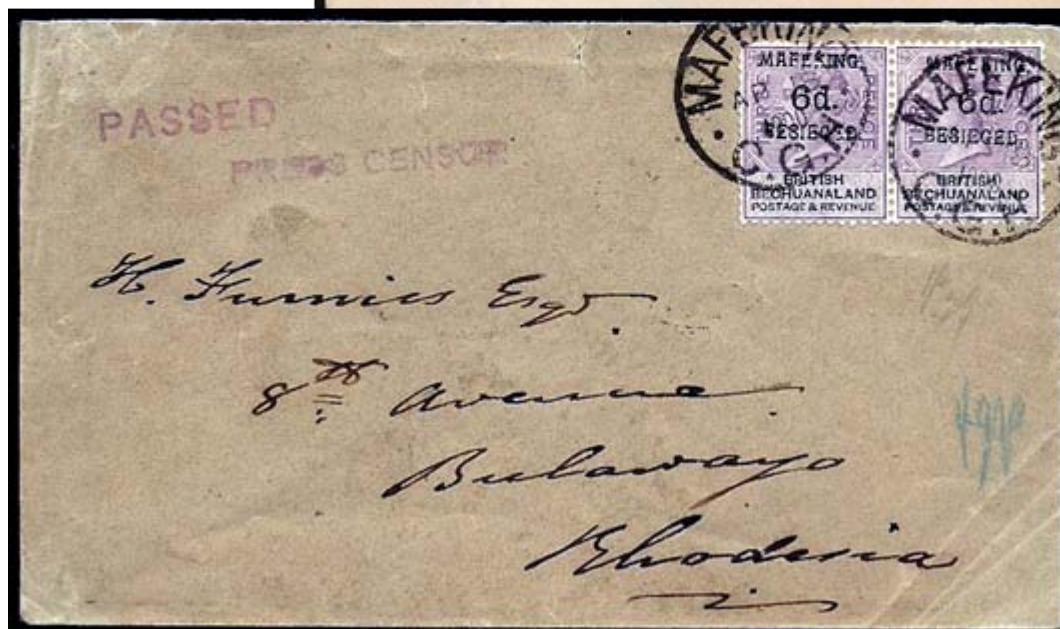 PASSED
PRESS CENSOR
MAFEKING
AP
C.G.H.
MAFEKING
6d.
BESIEGED
THREE PENCE
BRITISH
BECHUANALAND
POSTAGE & REVENUE
MAFEKING
C.G.H.
MAFEKING
6d.
BESIEGED
THREE PENCE
BRITISH
BECHUANALAND
POSTAGE & REVENUE
H. Furnies Esqr.
8th Avenue
Bulawayo
Rhodesia